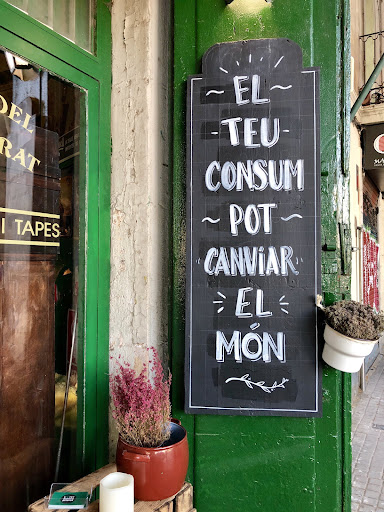 EL
TEU
CONSUM
POT
CANViAR
EL
MÓN
DEL
RAT
I TAPES